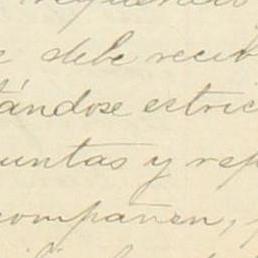 debe recib
tándose estric
untas y rep
compañen,